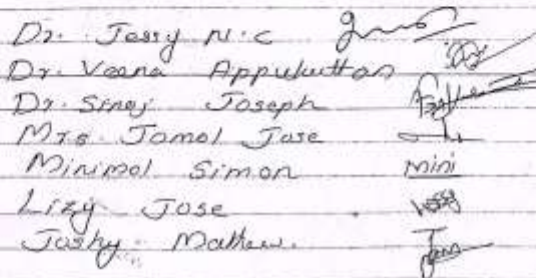 Dr. Jessy N.C
Dr. Veena Appukuttan
Dr. Sinoj Joseph
Mrs Jomol Jose
Minimol Simon mini
Lizy Jose
Joshy Mathew.